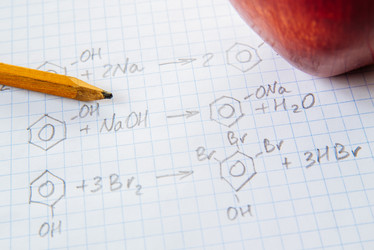 OH + 2Na → 2
OH + NaOH → ONa + H₂O
OH + 3Br₂ → Br Br Br OH + 3HBr